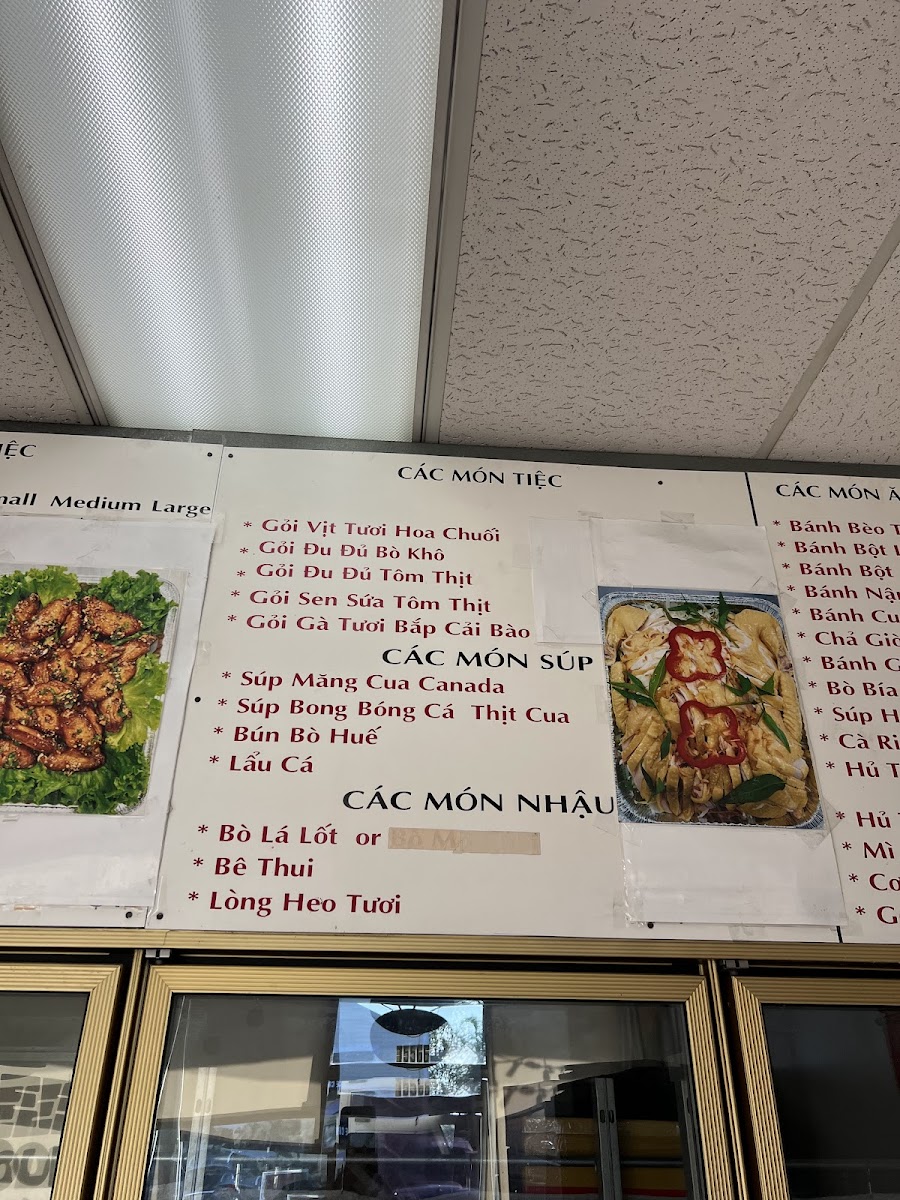 mall Medium Large
CÁC MÓN TIỆC
* Gỏi Vịt Tươi Hoa Chuối
* Gỏi Đu Đủ Bò Khô
* Gỏi Đu Đủ Tôm Thịt
* Gỏi Sen Sứa Tôm Thịt
* Gỏi Gà Tươi Bắp Cải Bào
CÁC MÓN SÚP
* Súp Măng Cua Canada
* Súp Bong Bóng Cá Thịt Cua
* Bún Bò Huế
* Lẩu Cá
CÁC MÓN NHẬU
* Bò Lá Lốt or
* Bê Thui
* Lòng Heo Tươi
CÁC MÓN
* Bánh Bèo
* Bánh Bột
* Bánh Bột
* Bánh
* Bánh
* Chả
* Bánh
* Bò Bía
* Súp
* Cà
* Hủ
* Hủ
* Mì